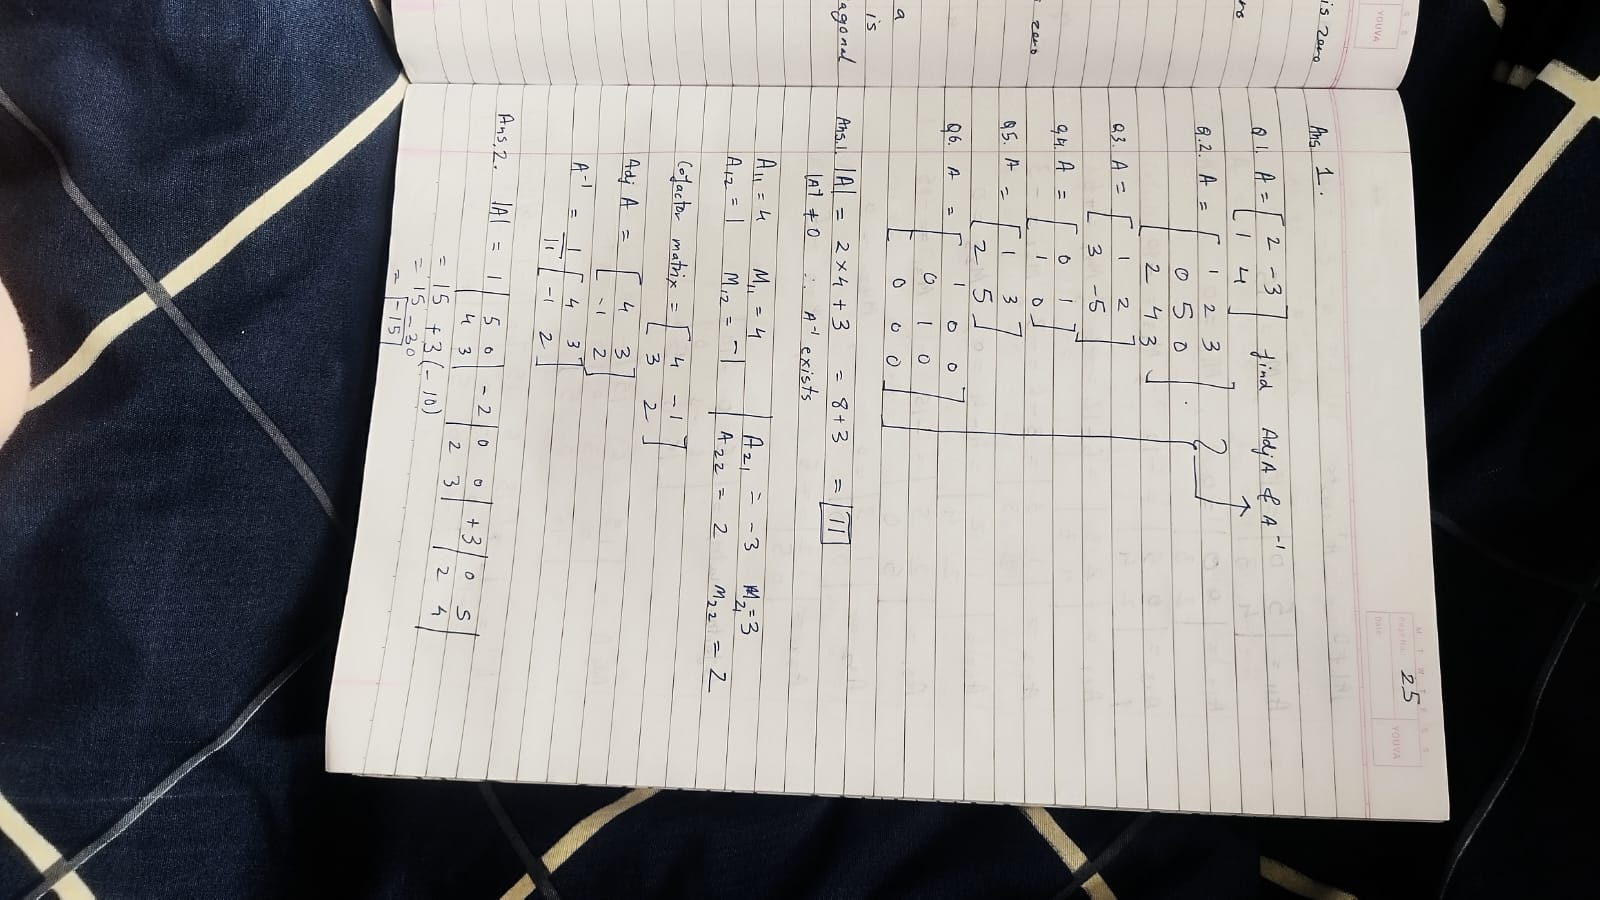 S S
YOUVA
is zero
ro
zero
a
is
agonal
M T W T F S S
Page No.: 25
YOUVA
Date:
Ans 1.
Q 1. A = [ 2 -3 ] find Adj A & A⁻¹
1 4
Q.2. A = [ 1 2 3 ] .
0 5 0
2 4 3
Q3. A = [ 1 2 ]
3 -5
Q4. A = [ 0 1 ]
1 0
Q5. A = [ 1 3 ]
2 5
Q6. A = [ 1 0 0 ]
0 1 0
0 0 0
Ans.1. |A| = 2×4 + 3 = 8+3 = 11
|A| ≠ 0 ∴ A⁻¹ exists
A₁₁ = 4 M₁₁ = 4 | A₂₁ = -3 M₂₁ = 3
A₁₂ = 1 M₁₂ = -1 | A₂₂ = 2 M₂₂ = 2
Cofactor matrix = [ 4 -1 ]
3 2
Adj A = [ 4 3 ]
-1 2
A⁻¹ = 1/11 [ 4 3 ]
-1 2
Ans.2. |A| = 1 | 5 0 | - 2 | 0 0 | + 3 | 0 5 |
4 3 2 3 2 4
= 15 + 3(-10)
= 15 - 30
= -15